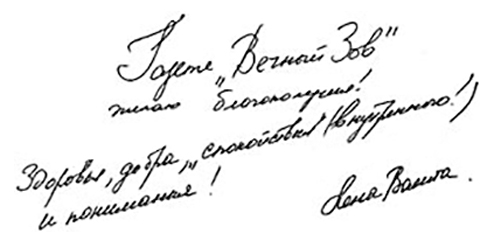 Газете „Вечный Зов"
желаю благополучия!
Здоровья, добра, „спокойствия" (внутреннего!)
и понимания!
Лена